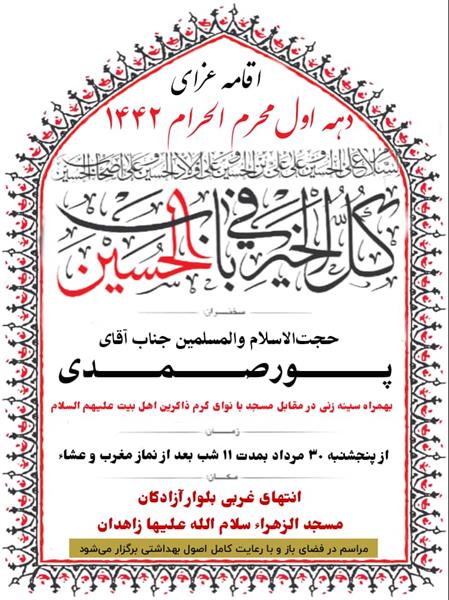 اقامه عزای
دهه اول محرم الحرام ۱۴۴۲
السلام علی الحسین و علی علی بن الحسین و علی اولاد الحسین و علی اصحاب الحسین
كُلُّ الخَیرِ فی بابِ الحُسین
سخنران
حجت‌الاسلام والمسلمین جناب آقای
پورصمدی
بهمراه سینه زنی در مقابل مسجد با نوای گرم ذاکرین اهل بیت علیهم السلام
زمان
از پنجشنبه ۳۰ مرداد بمدت ۱۱ شب بعد از نماز مغرب و عشاء
مکان
انتهای غربی بلوار آزادگان
مسجد الزهراء سلام الله علیها زاهدان
مراسم در فضای باز و با رعایت کامل اصول بهداشتی برگزار می‌شود